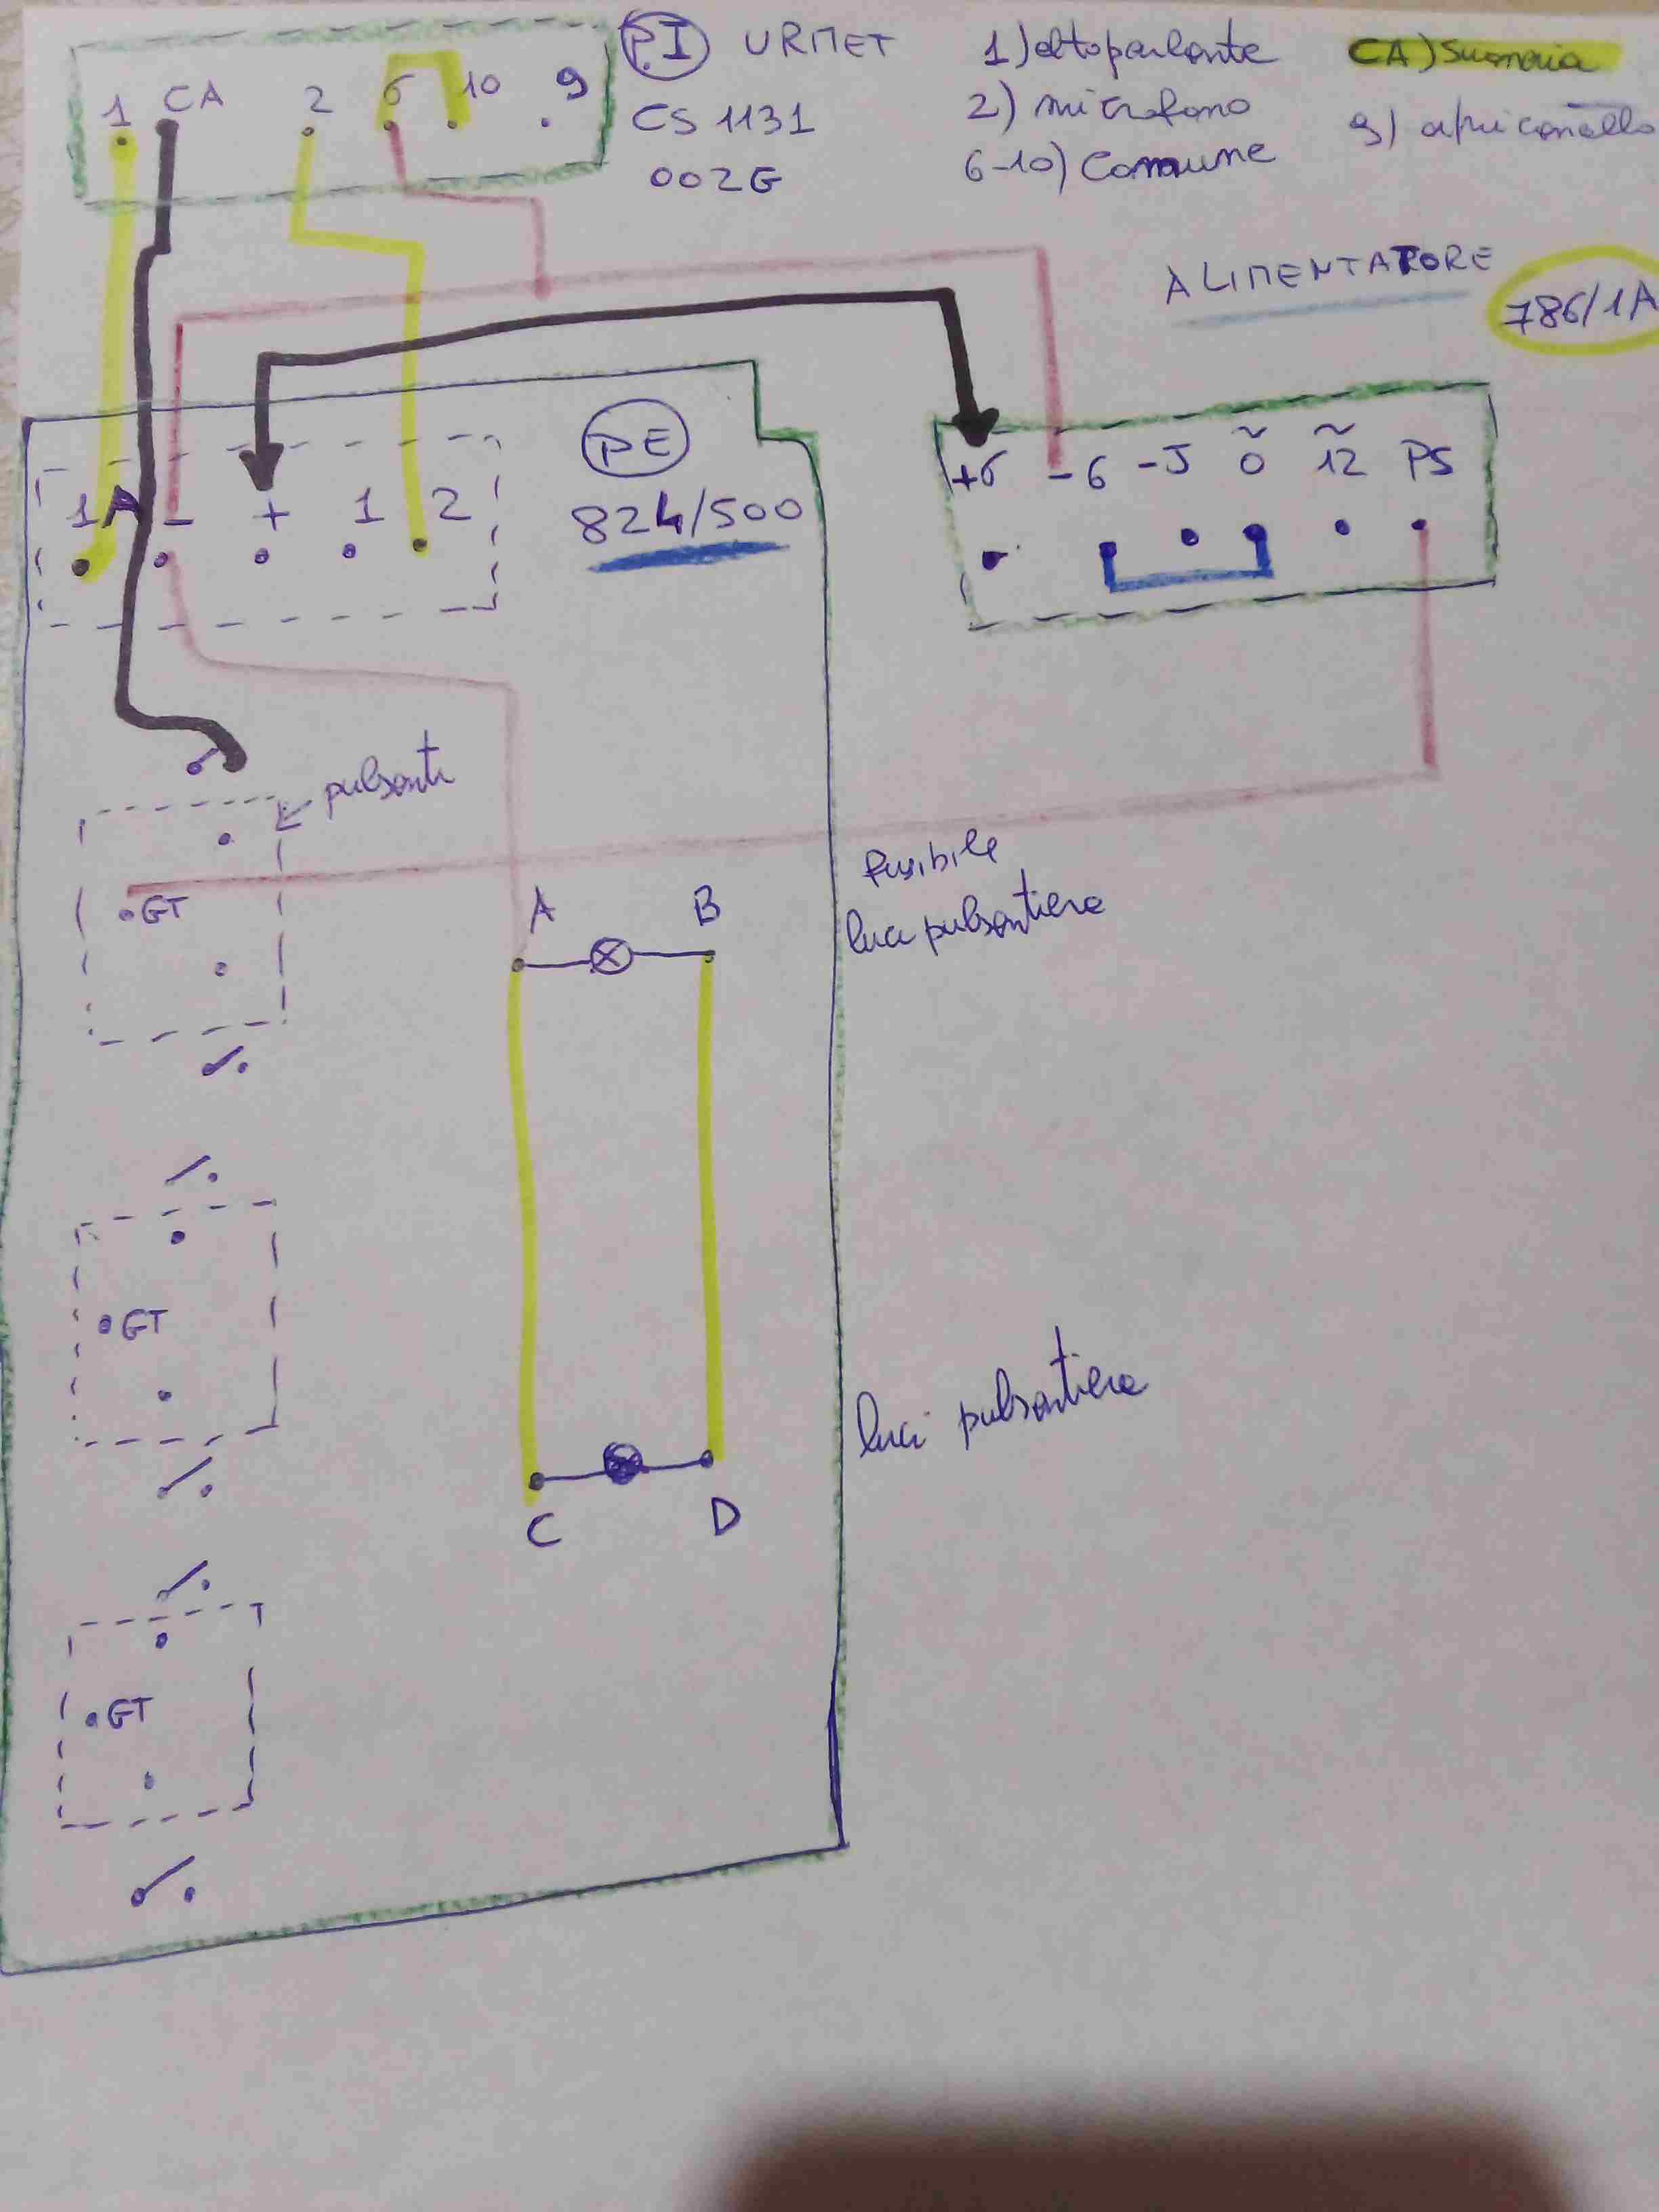 P.I URMET
CS 1131
002G
1) altoparlante
2) microfono
6-10) Comune
CA) Suoneria
9) apricancello
1 CA 2 6 10 9
ALIMENTATORE
786/1A
PE
824/500
1A - + 1 2
+6 -6 -J 0 12 PS
~ ~
pulsanti
GT
A B
fusibile
luci pulsantiera
GT
luci pulsantiera
C D
GT